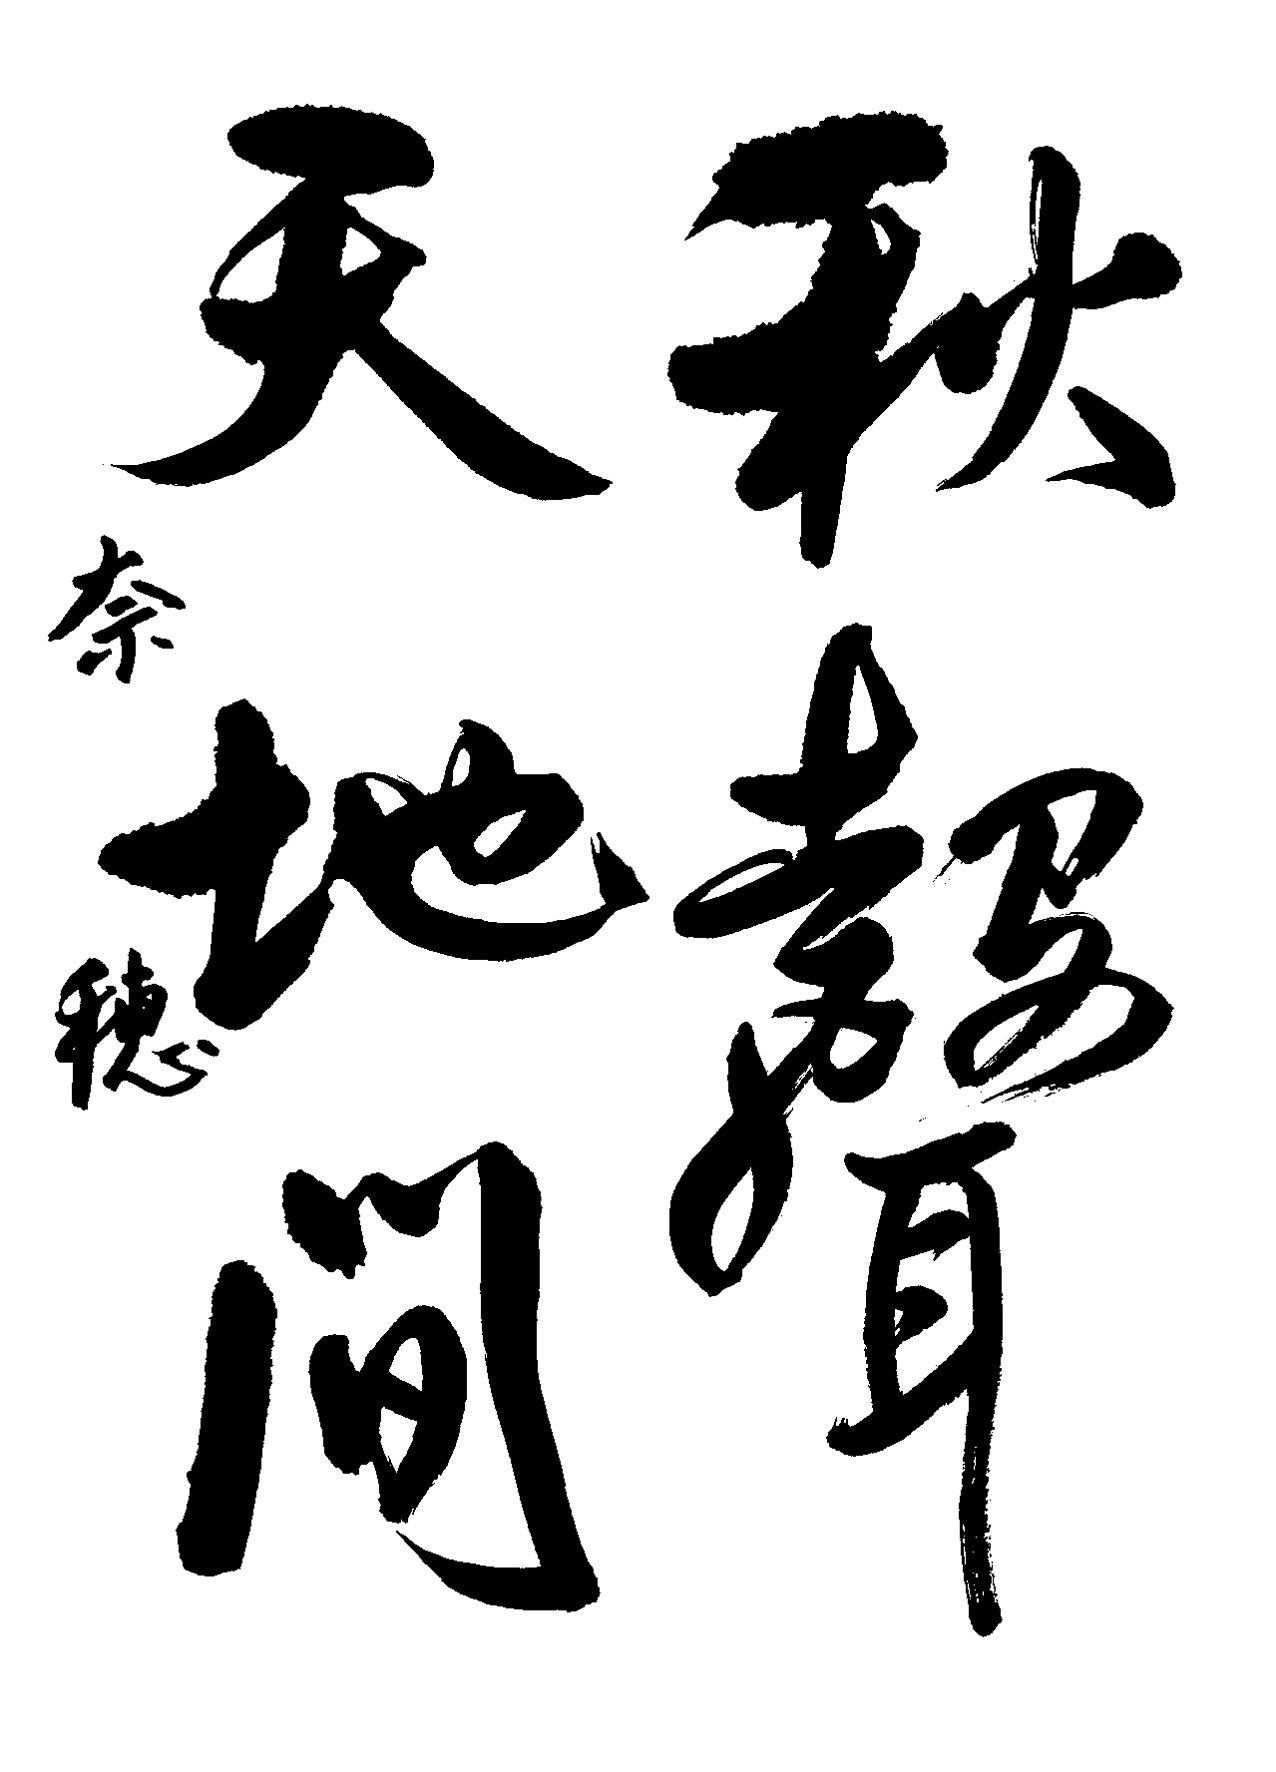 秋聲
天地間
奈穂